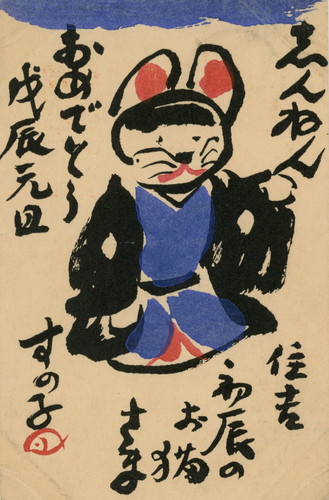 しんねん
おめでとう
戊辰元旦
住吉
初辰の
お猫
さま
すの子